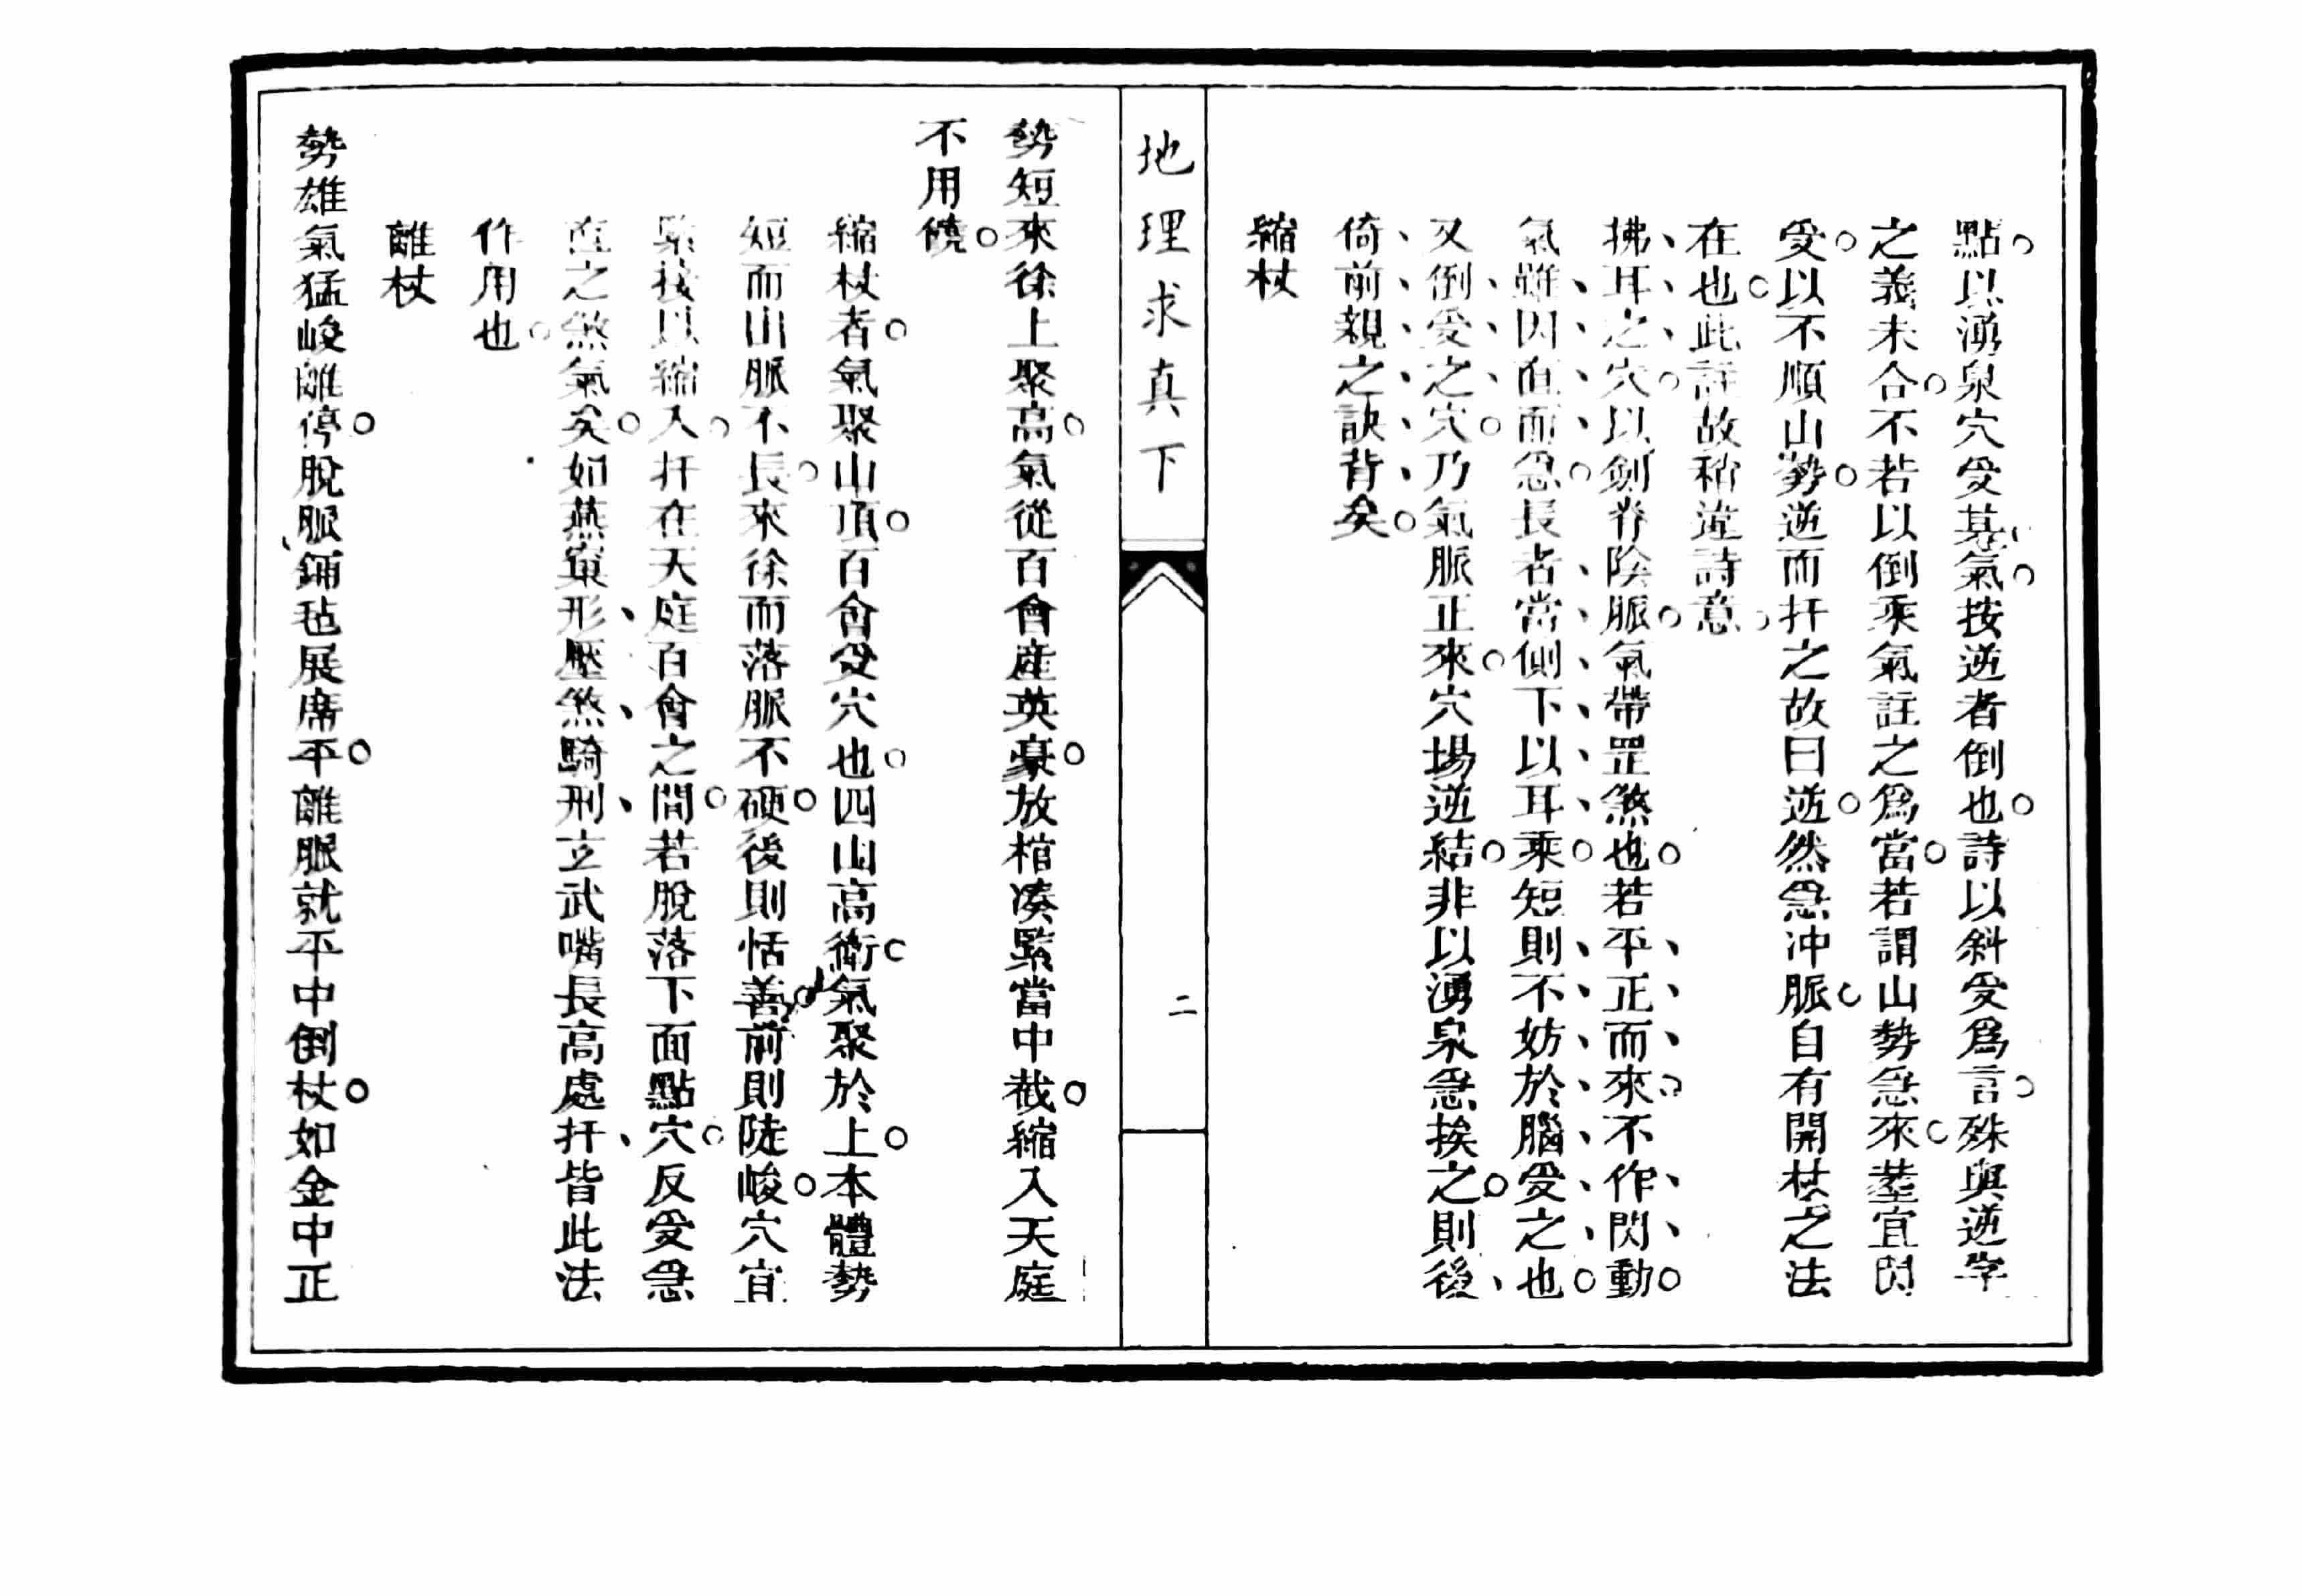 點以湧泉穴受其氣按逆者倒也詩以斜受為言殊與逆字
之義未合不若以倒乘氣註之為當若謂山勢急來塟宜閃
受以不順山勢逆而扦之故曰逆然急沖脈自有開杖之法
在也此註故稍違詩意
拂耳之穴以劍脊陰脈氣帶罡煞也若平正而來不作閃動
氣雖因直而急長者當側下以耳乘短則不妨於腦受之也
又倒受之穴乃氣脈正來穴場逆結非以湧泉急挨之則後
倚前親之訣背矣
縮杖
地理求真下
二
勢短來徐上聚高氣從百會産英豪放棺凑緊當中截縮入天庭
不用饒
縮杖者氣聚山頂百會受穴也四山高衛氣聚於上本體勢
短而山脈不長來徐而落脈不硬後則恬善前則陡峻穴宜
緊接以縮入扦在天庭百會之間若脫落下面點穴反受急
直之煞氣矣如燕窠形壓煞騎刑立武嘴長高處扦皆此法
作用也
離杖
勢雄氣猛峻離停脫脈鋪毡展席平離脈就平中倒杖如金中正